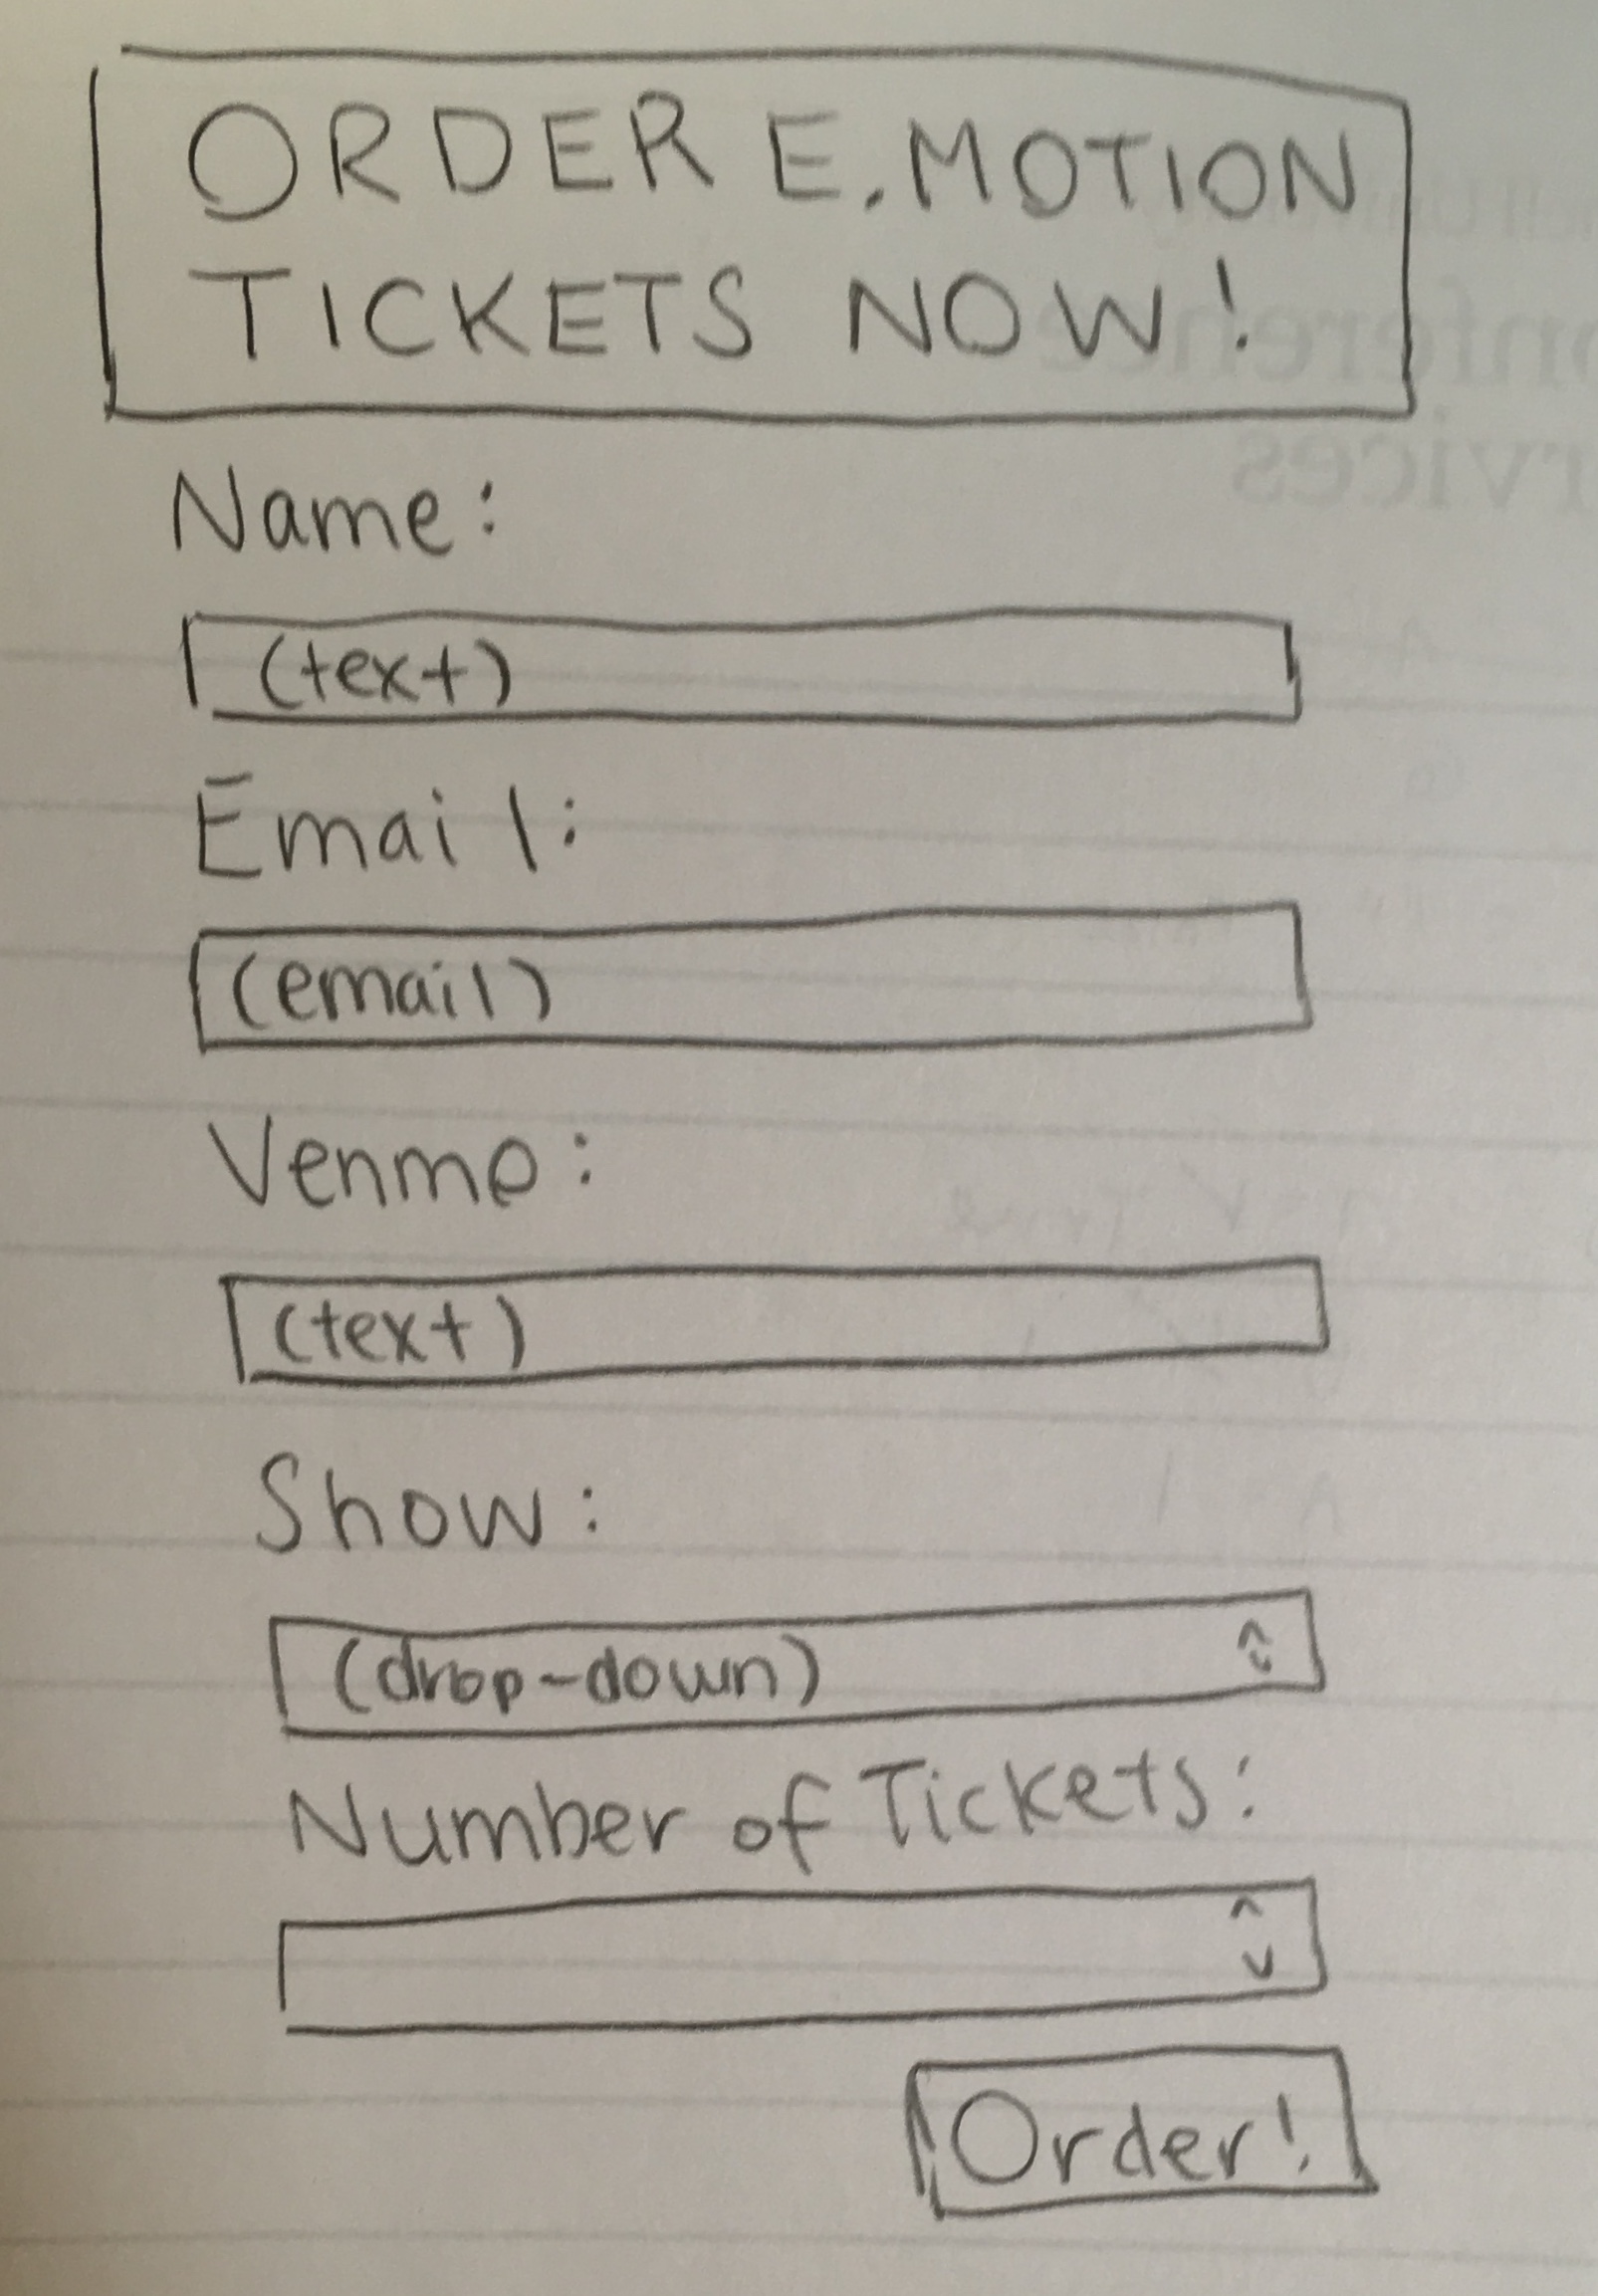 ORDER E.MOTION
TICKETS NOW!
Name:
(text)
Email:
(email)
Venmo:
(text)
Show:
(drop-down)
Number of Tickets:
Order!